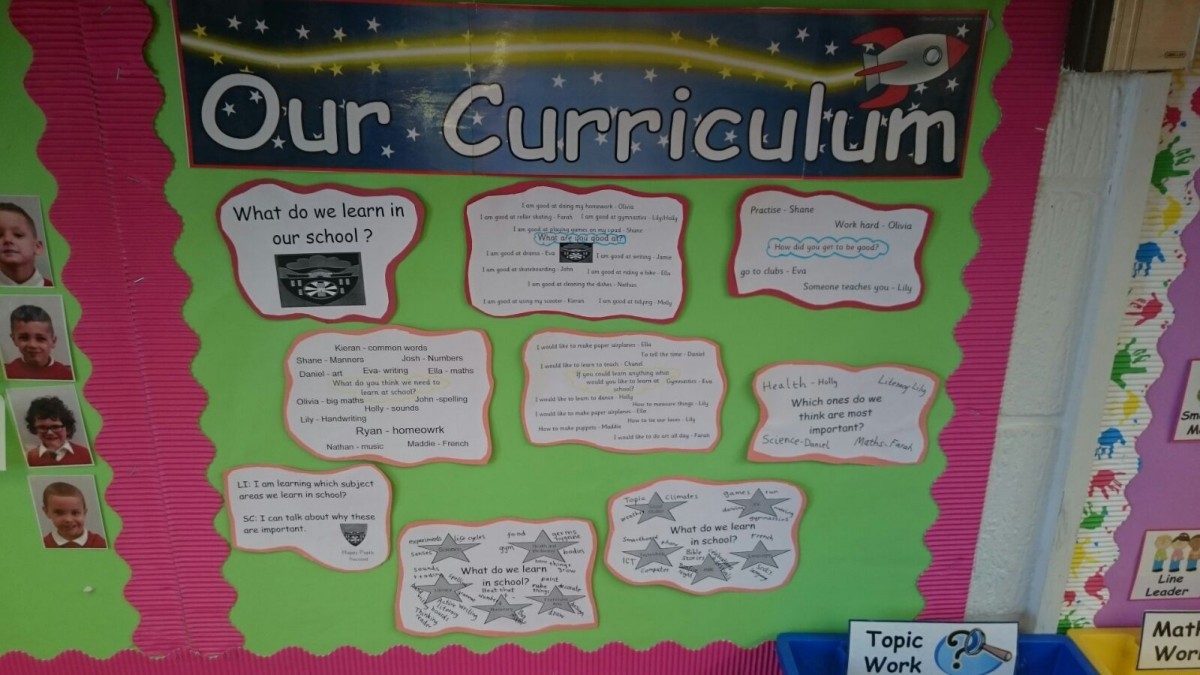 Our Curriculum
What do we learn in
our school ?
I am good at doing my homework - Olivia
I am good at roller skating - Farah I am good at gymnastics - Lily/Holly
I am good at playing games on my i.pad - Shane
What are you good at?
I am good at drama - Eva I am good at writing - Jamie
I am good at skateboarding - John I am good at riding a bike - Ella
I am good at cleaning the dishes - Nathan
I am good at using my scooter - Kieran I am good at tidying - Molly
Practise - Shane
Work hard - Olivia
How did you get to be good?
go to clubs - Eva
Someone teaches you - Lily
Kieran - common words
Shane - Manners Josh - Numbers
Daniel - art Eva- writing Ella - maths
What do you think we need to
learn at school?
Olivia - big maths John -spelling
Holly - sounds
Lily - Handwriting
Ryan - homeowrk
Nathan - music Maddie - French
I would like to make paper airplanes - Ella
To tell the time - Daniel
I would like to learn to teach - Chanel
If you could learn anything what
would you like to learn at Gymnastics - Eva
school?
I would like to learn to dance - Holly
How to measure things - Lily
I would like to make paper airplanes - Ella
How to tie our laces - Lily
How to make puppets - Maddie
I would like to do art all day - Farah
Health - Holly Literacy-Lily
Which ones do we
think are most
important?
Science-Daniel Maths-Farah
LI: I am learning which subject
areas we learn in school?
SC: I can talk about why these
are important.
experiments life cycles
senses
Science
gym
bodies
sounds
reading
What do we learn
in school?
paint
make
things
Active Literacy
writing
Thinking
reader
Topic climates
games fun
weather
dance
gymnastics
What do we learn
in school?
French
Smartboard
ICT
computer
Bible
stories
Topic
Work
Line
Leader
Math
Wor